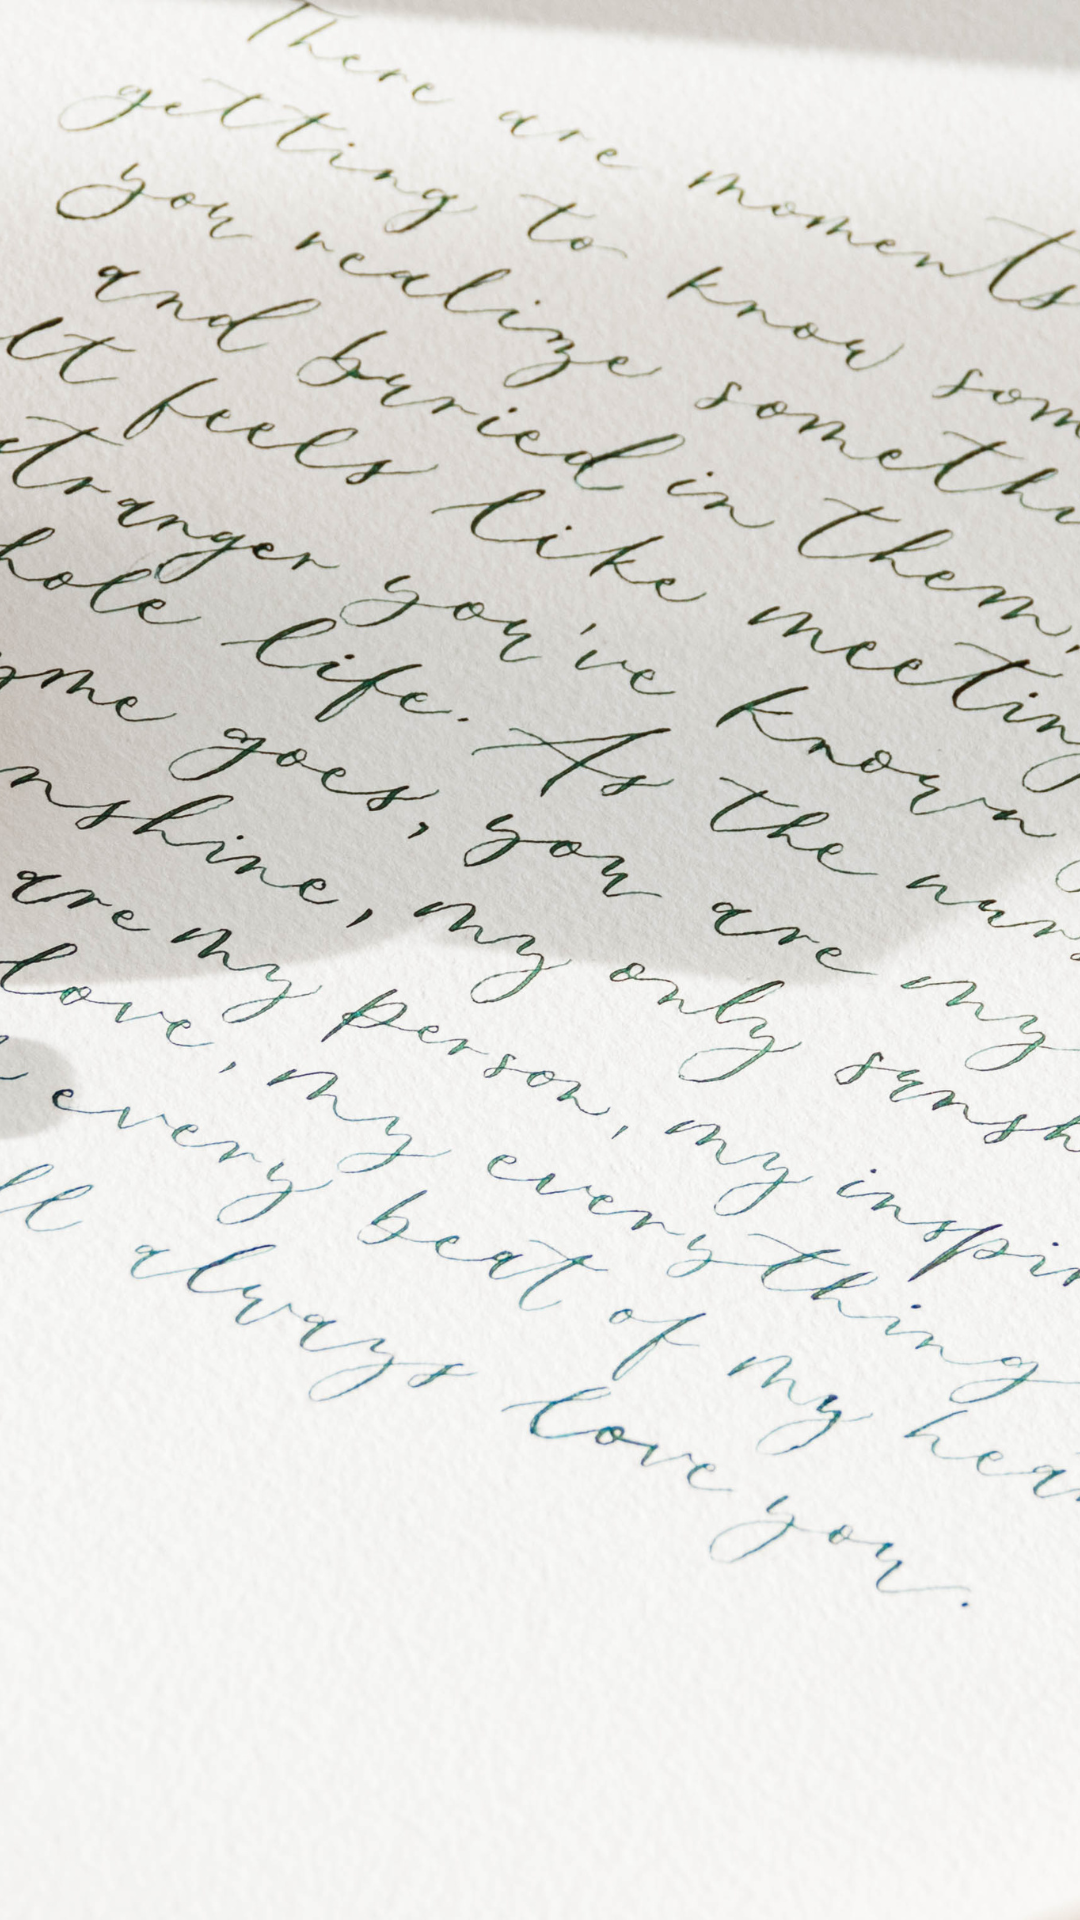 There are moments
getting to know som
you realize somethi
and buried in them,
It feels like meeting
stranger you've known
hole life. As the nurs
yme goes, you are my
nshine, my only sunsh
are my person, my inspir
love, my everything
every beat of my hear
ll always love you.